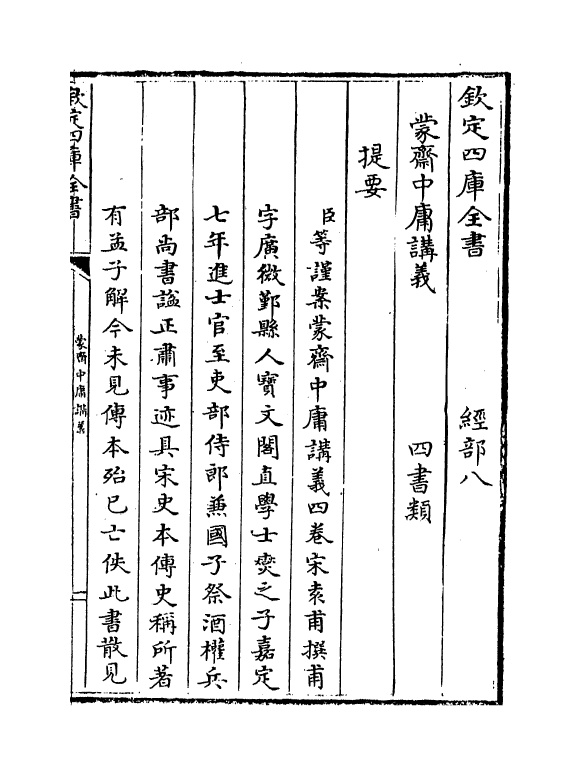 欽定四庫全書　經部八
蒙齋中庸講義　四書類
提要
臣等謹案蒙齋中庸講義四卷宋袁甫撰甫
字廣微鄞縣人寶文閣直學士燮之子嘉定
七年進士官至吏部侍郎兼國子祭酒權兵
部尚書諡正肅事迹具宋史本傳史稱所著
有孟子解今未見傳本殆已亡佚此書散見
欽定四庫全書
蒙齋中庸講義
一